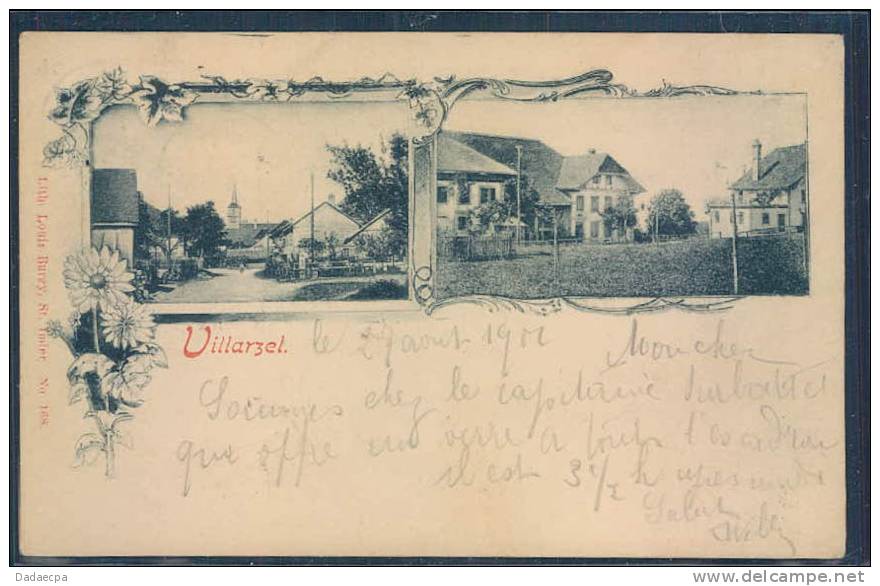 Lith. Louis Burey, St. Imier. No 168
Villarzel. le 29 août 1901
Mon cher
chez le capitaine
que offre un verre a toute l'escadron
il est 3 1/2 h
Salut
Dadaecpa
www.delcampe.net